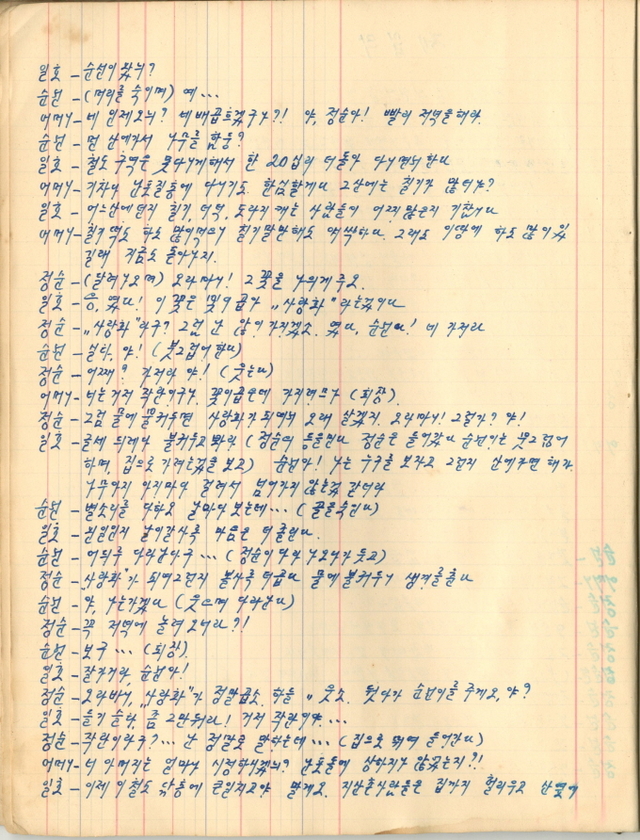 일호 - 순선이 왔늬?
순선 - (머리를 숙이며) 예…
어머니 - 네 인제 오늬? 네 배곺으겠구나?! 야, 정순아! 빨리 저녁을 해라.
순선 - 먼 산에 가서 나무를 함둥?
일호 - 철도 구역은 못 다치게 해서 한 20십리 더 들어
어머니 - 기차나 남포질 중에 다니기도 한심할게다 그 산에는 칡기가 많더냐?
일호 - 어느 산에던지 칡기, 더덕, 도라지 캐는 사람들이
어머니 - 칡기떡도 하도 많이 먹으니 칡기 말만 해도 애싹하다. 그래도 이 땅에 하도 많이 있
길래 지금도 돌아가지.
정순 - (달려나오며) 오라바니! 그 꽃을 나에게 주오.
일호 - 응, 였다! 이 꽃은 빛이 곱아 „사랑화"라는 것이다
정순 - „사랑화"라구? 그럼 난 않이 가지겠소. 였다, 순선아! 네 가져라
순선 - 싫다, 야! (붓그럽어 한다)
정순 - 어째? 가져라 야! (웃는다)
어머니 - 너는 거저 작란이구나. 꽃이 곱은데 가지려므나 (퇴장).
정순 - 그럼 물에 불커두면 사랑화가 되여서 오래 살겠지. 오라바니! 그럴가? 야!
일호 - 글세 되거나 불커두고 봐라 (정순의 등을 민다 정순은 들어갔다 순선이는 붓그럽어
하며, 집으로 가려는 것을 보고) 순선아! 나는 누구를 보자고 그런지 산에 가면 해가
너무 가지 걸려서 넘어가지 않는 것 같더라
순선 - 별소리를 다 하오 날마다 보는데… (골을 숙인다)
일호 - 웬일인지 날이 갈사록 마음은 더 졸인다.
순선 - 어듸루 달아남아구… (정순이 다시 나오다가 듯고)
정순 - „사랑화"가 되여 그런지 볼사록 더 곱다 물에 불커두니 생기를 춘다
순선 - 야, 나는 가겠다 (웃으며 달아난다)
정순 - 꼭 저녁에 놀러 오너라?!
순선 - 보구… (퇴장)
일호 - 잘 가거라 순선아!
정순 - 오라바니, „사랑화"가 정말 곱소. 하늘 웃소. 뒷다가 순선이를 주게오, 야?
일호 - 듣기 슳다, 좀 그만둬라! 거저 작란이야…
정순 - 작란이라구?… 난 정말로 말하는데… (집으로 뛰여 들어간다)
어머니 - 너 아버지는 얼마나 시정하시겠늬? 남포돌에 상하지나 않겠는지?!
일호 - 이제 이 철도 닦을에 큰일치고야 말게오. 지난 촌 사람들은 집까지 헐리우고 산옆에